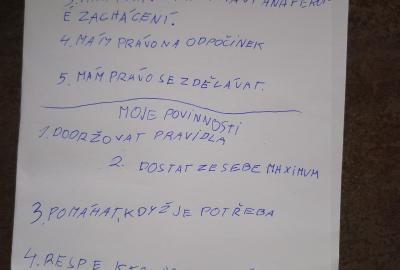 É ZACHÁCENÍ.
4. MÁM PRÁVO NA ODPOČINEK
5. MÁM PRÁVO SE ZDĚLÁVAT.
MOJE POVINNOSTI
1. DODRŽOVAT PRAVIDLA
2. DOSTAT ZE SEBE MAXIMUM
3. POMÁHAT, KDYŽ JE POTŘEBA
4. RESPE